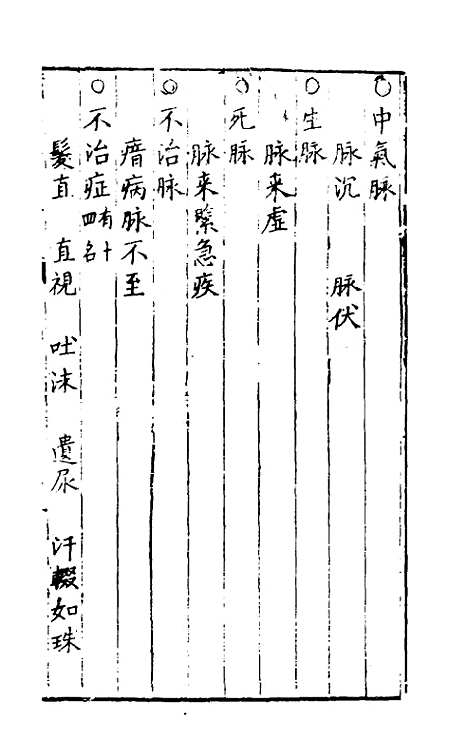 ○中氣脉
脉沉 脉伏
○生脉
脉来虛
○死脉
脉来緊急疾
○不治脉
瘖病脉不至
○不治症有十四名
髮直 直視 吐沫 遺尿 汗輟如珠